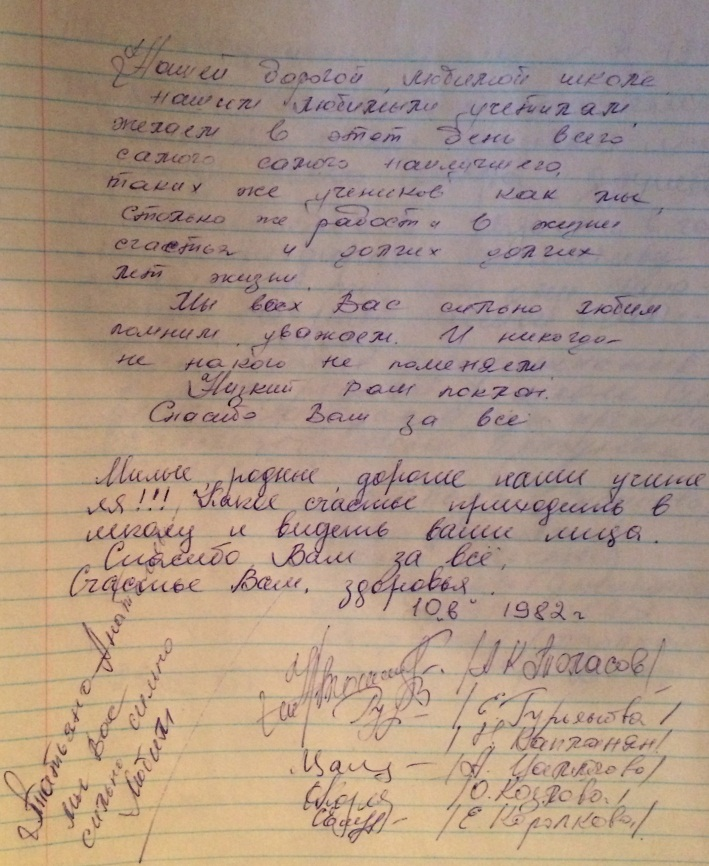 Нашей дорогой любимой школе
нашим любимым учителям
желаем в этот день всего
самого самого наилучшего,
таких же учеников как мы,
столько же радости в жизни
счастья и долгих долгих
лет жизни.
Мы всех Вас сильно любим
помним, уважаем. И никогда
не на кого не поменяем
Низкий Вам поклон.
Спасибо Вам за все
Милые, родные, дорогие наши учите
ля!!! Какое счастье приходить в
школу и видеть ваши лица.
Спасибо Вам за всё.
Счастье Вам, здоровья.
10"в" 1982 г
/А К Погасов/
/Е. Гурьянова/
/О. Козлова./
/Е Королкова./
Татьяна
мы Вас
сильно сильно
любим